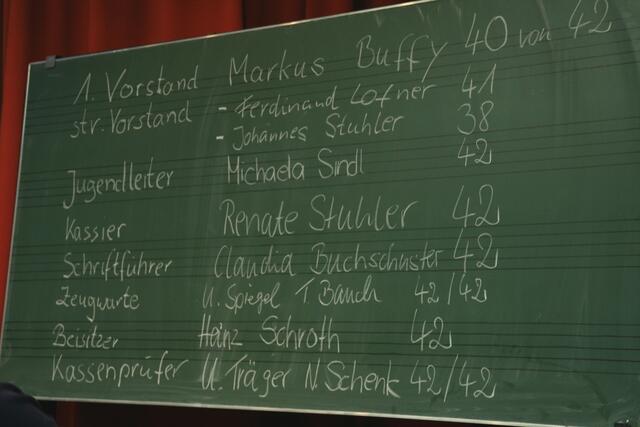 1. Vorstand Markus Buffy 40 von 42
str. Vorstand - Ferdinand Lofner 41
- Johannes Stuhler 38
Jugendleiter Michaela Sindl 42
Kassier Renate Stuhler 42
Schriftführer Claudia Buchschuster 42
Zeugwarte U. Spiegel T. Bauch 42/42
Beisitzer Heinz Schroth 42
Kassenprüfer U. Träger N. Schenk 42/42